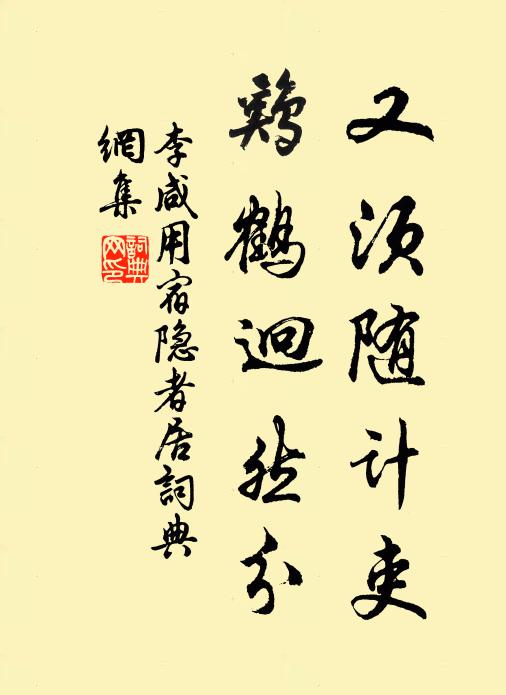 又须随计吏
鷄鶴迥然分
李咸用宿隐者居詞典
網集
詞典网印